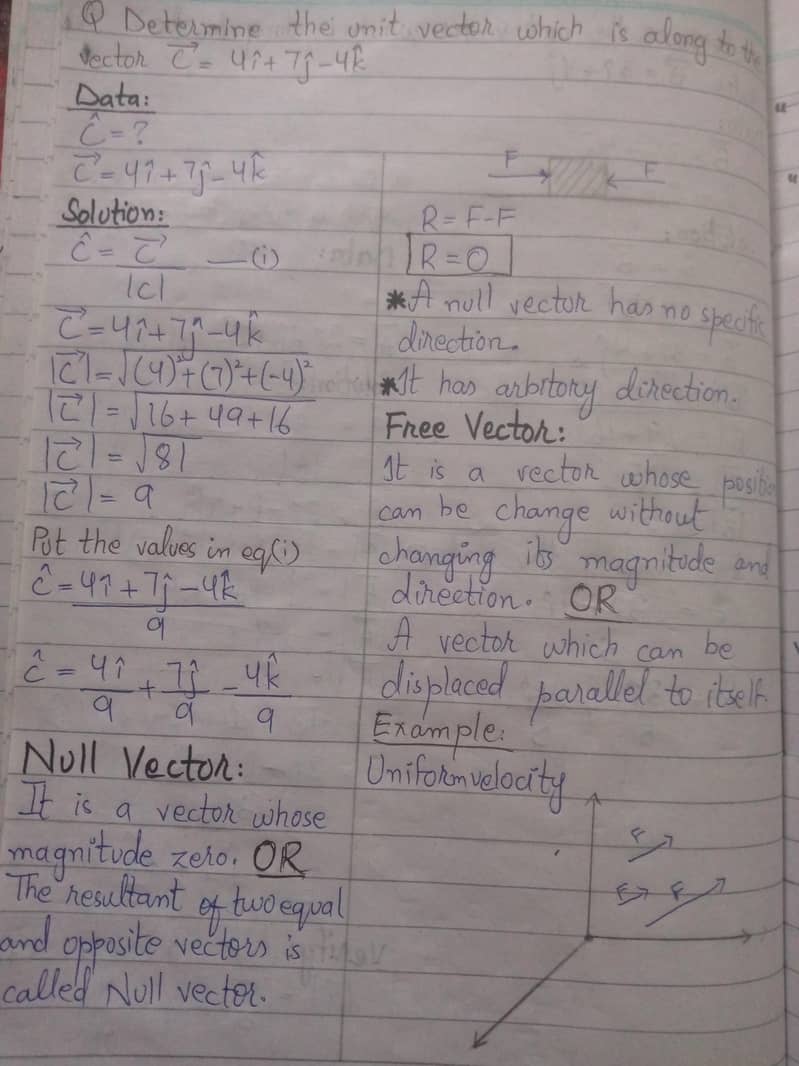 Q Determine the unit vector which is along to the
vector C⃗ = 4î + 7ĵ - 4k̂
Data:
Ĉ = ?
C⃗ = 4î + 7ĵ - 4k̂
Solution:
Ĉ = C⃗ / |C| —(i)
C⃗ = 4î + 7ĵ - 4k̂
|C⃗| = √(4)² + (7)² + (-4)²
|C⃗| = √16 + 49 + 16
|C⃗| = √81
|C⃗| = 9
Put the values in eq(i)
Ĉ = 4î + 7ĵ - 4k̂ / 9
Ĉ = 4î/9 + 7ĵ/9 - 4k̂/9
Null Vector:
It is a vector whose
magnitude zero. OR
The resultant of two equal
and opposite vectors is
called Null vector.
F F
R = F-F
R = 0
*A null vector has no specific
direction.
*It has arbitory direction.
Free Vector:
It is a vector whose positio
can be change without
changing its magnitude and
direction. OR
A vector which can be
displaced parallel to itself.
Example:
Uniform velocity
F
F F